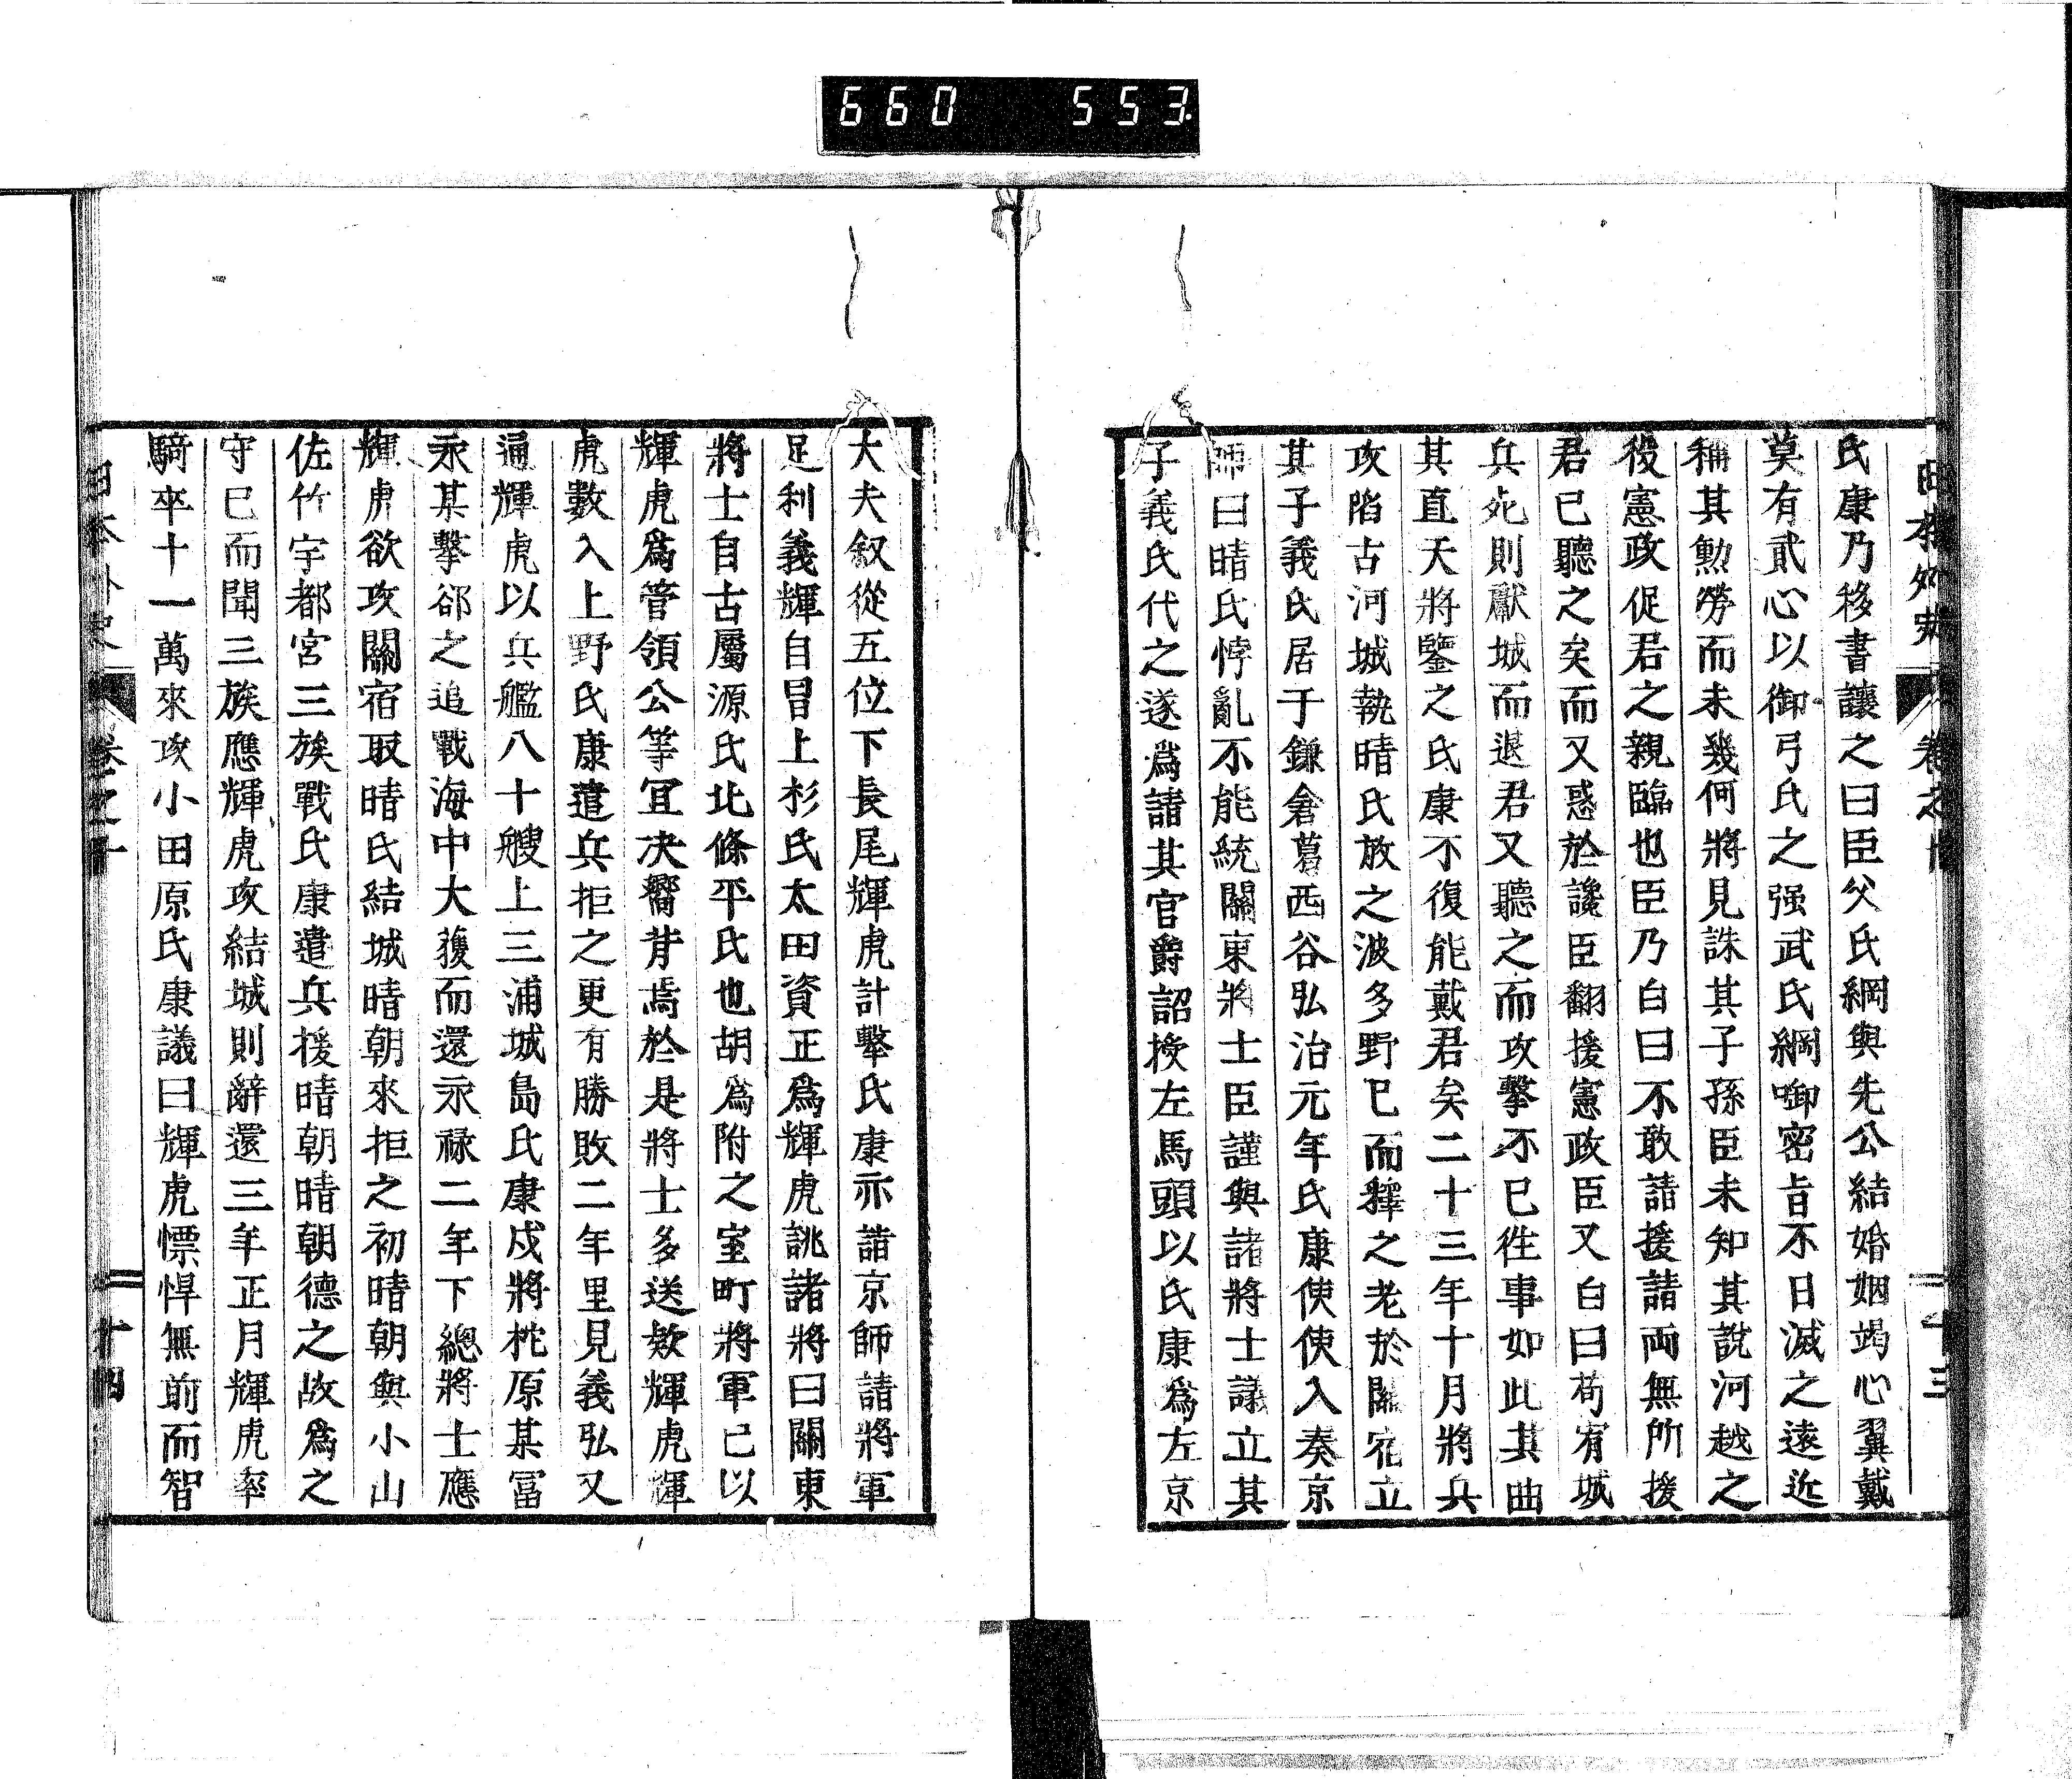 660 553.
氏康乃移書讓之曰臣父氏綱與先公結婚姻竭心翼戴
莫有貳心以御弓氏之强武氏綱啣密旨不日滅之遠近
稱其勲勞而未幾何將見誅其子孫臣未知其說河越之
役憲政促君之親臨也臣乃白曰不敢請援請両無所援
君已聽之矣而又惑於讒臣翻援憲政臣又白曰苟宥城
兵死則獻城而退君又聽之而攻擊不已徃事如此其曲
其直天將鑒之氏康不復能戴君矣二十三年十月將兵
攻陷古河城執晴氏放之波多野已而釋之老於關宿立
其子義氏居于鎌倉葛西谷弘治元年氏康使使入奏京
師曰晴氏悖亂不能統關東將士臣謹與諸將士議立其
子義氏代之遂爲請其官爵詔授左馬頭以氏康爲左京
大夫叙從五位下長尾輝虎計擊氏康亦詣京師請將軍
足利義輝自冒上杉氏太田資正爲輝虎誂諸將曰關東
將士自古屬源氏北條平氏也胡爲附之室町將軍已以
輝虎爲管領公等宜决嚮背焉於是將士多送欵輝虎輝
虎數入上野氏康遣兵拒之更有勝敗二年里見義弘又
通輝虎以兵艦八十艘上三浦城島氏康戍將梶原某冨
永某擊郤之追戰海中大獲而還永禄二年下總將士應
輝虎欲攻關宿取晴氏結城晴朝來拒之初晴朝與小山
佐竹宇都宮三族戰氏康遣兵援晴朝晴朝德之故爲之
守已而聞三族應輝虎攻結城則辭還三年正月輝虎率
騎卒十一萬來攻小田原氏康議曰輝虎慓悍無前而智
日本外史 卷之十 十四